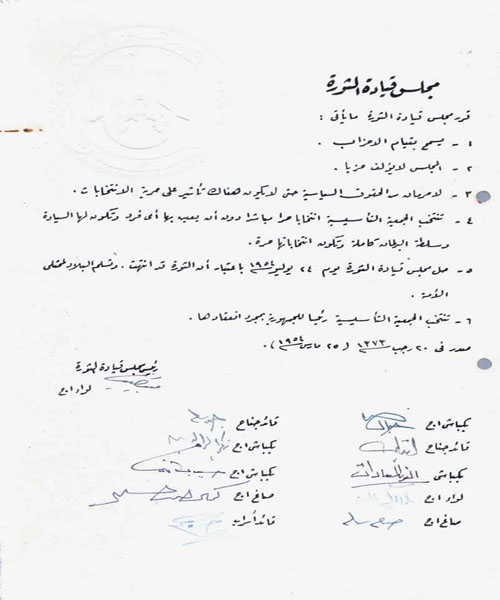 مجلس قيادة الثورة
قرر مجلس قيادة الثورة مايأتى :
١ - يسمح بقيام الاحزاب .
٢ - المجلس لايؤلف حزبا .
٣ - لاحرمان من الحقوق السياسية حتى لايكون هناك تأثير على حرية الانتخابات .
٤ - تنتخب الجمعية التأسيسية انتخابا حرا مباشرا دون أن يعين بها أى فرد وتكون لها السيادة
وسلطة البرلمان كاملة وتكون انتخاباتها حرة .
٥ - حل مجلس قيادة الثورة يوم ٢٤ يوليو ١٩٥٤ باعتبار أن الثورة قد انتهت . وتسلم البلاد لممثلى
الأمة .
٦ - تنتخب الجمعية التأسيسية رئيسا للجمهورية بمجرد انعقادها .
صدر فى ٢٠ رجب ١٣٧٣ (٢٥ مارس ١٩٥٤) .
رئيس مجلس قيادة الثورة
لواء أ.ح
بكباشى أ.ح
قائد جناح
قائد جناح
بكباشى أ.ح
بكباشى
بكباشى أ.ح
لواء أ.ح
صاغ أ.ح
صاغ أ.ح
قائد أسراب